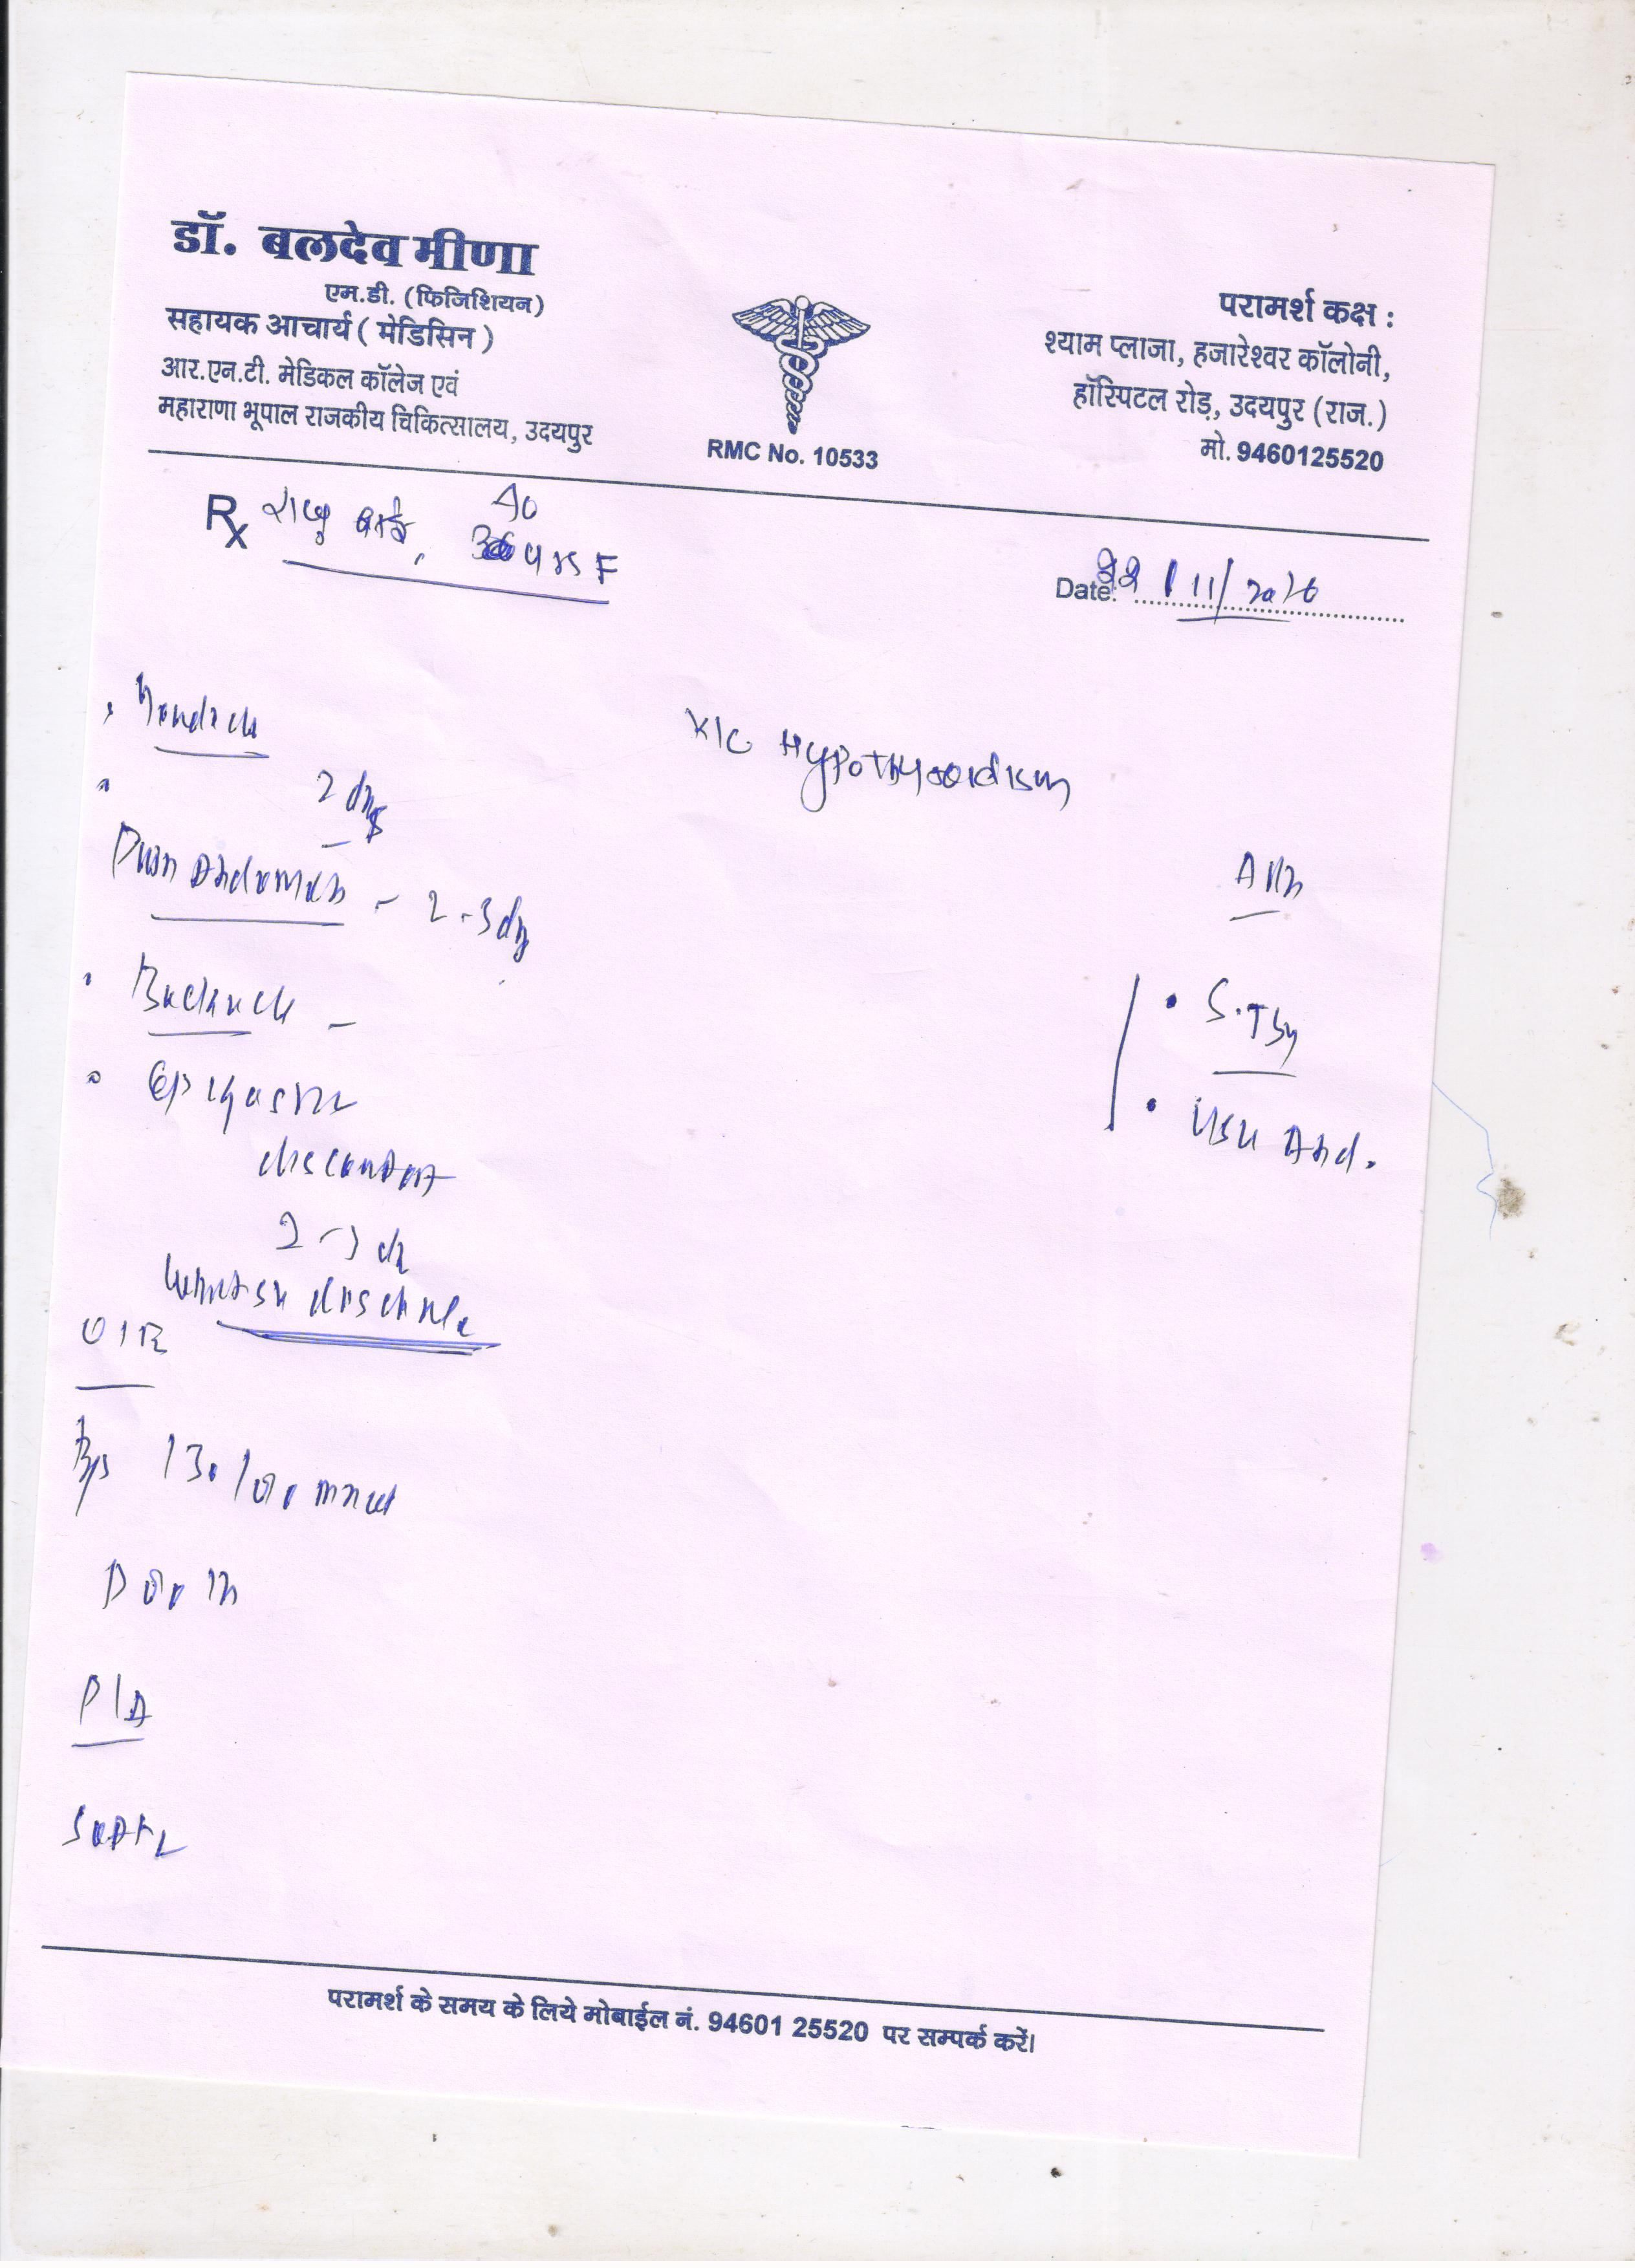 डॉ. बलदेव मीणा
एम.डी. (फिजिशियन)
सहायक आचार्य ( मेडिसिन )
आर.एन.टी. मेडिकल कॉलेज एवं
महाराणा भूपाल राजकीय चिकित्सालय, उदयपुर
RMC No. 10533
परामर्श कक्ष :
श्याम प्लाजा, हजारेश्वर कॉलोनी,
हॉस्पिटल रोड़, उदयपुर (राज.)
मो. 9460125520
Rx राजु बाई, 40 yrs F
Date: /11/
K/C Hypothyroidism
2 days
Pain Abdomen - 2-3 day
Backache -
Epigastric
discomfort
2-3 d
discharge
O/E
BP 130/
P/A
Soft
Adv
S.TSH
USG Abd.
परामर्श के समय के लिये मोबाईल नं. 94601 25520 पर सम्पर्क करें।